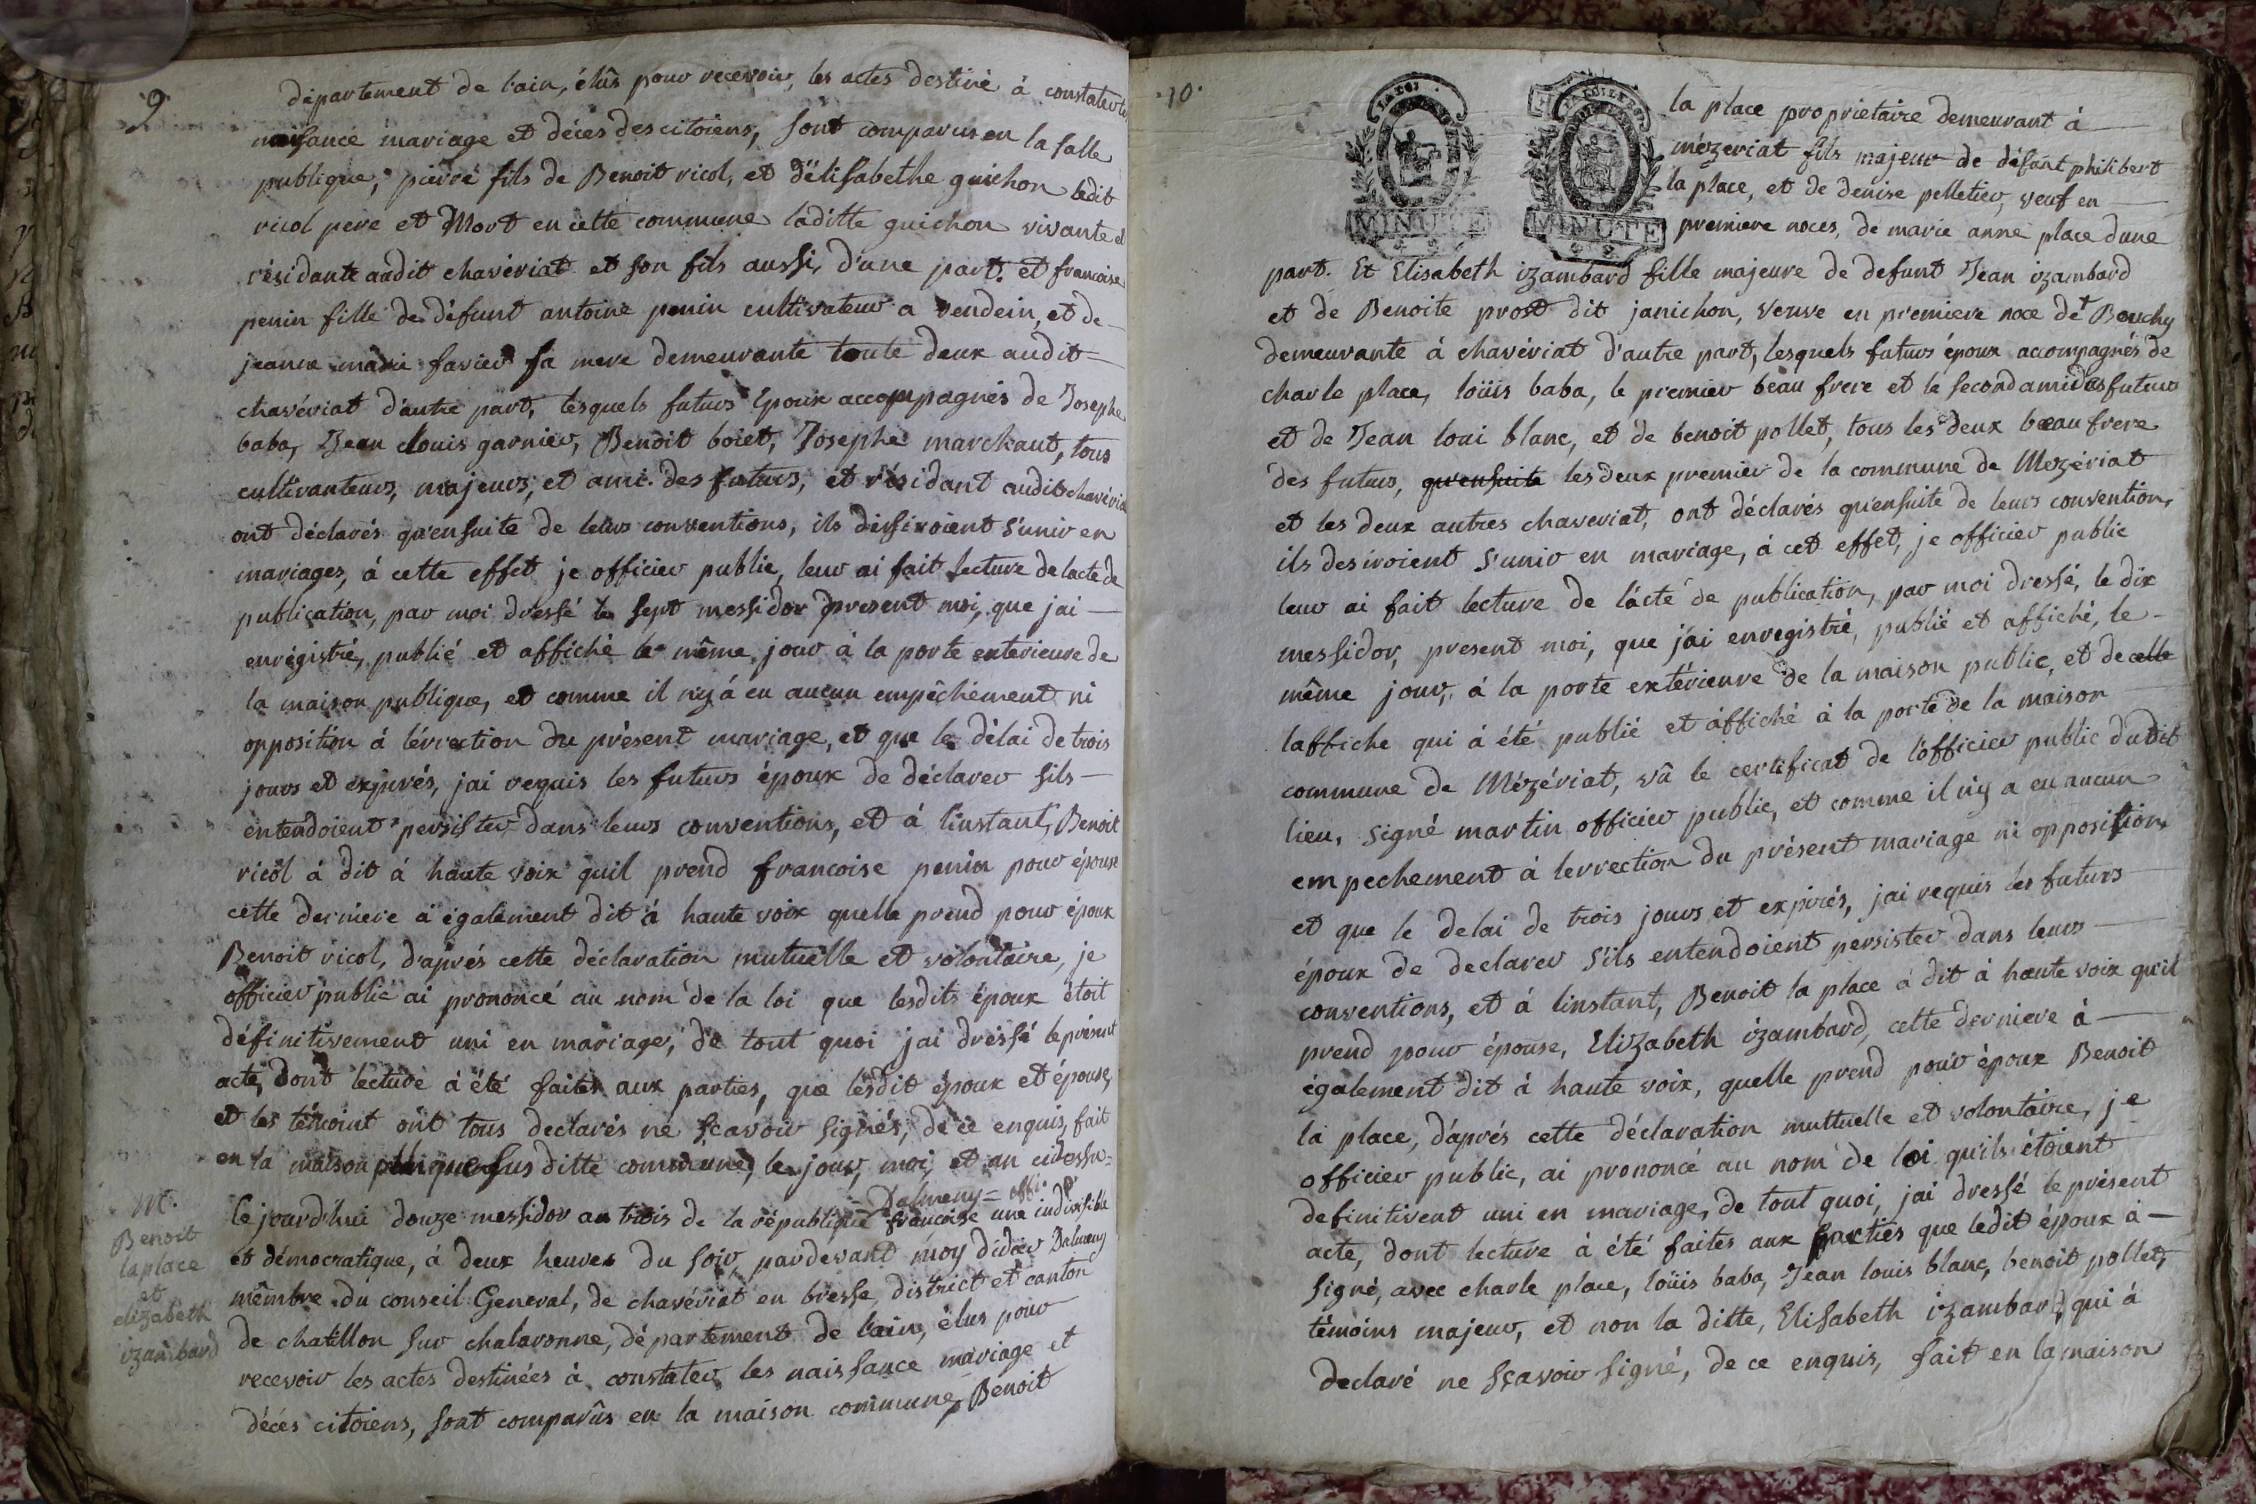 9
département de l'ain, élûs pour recevoir, les actes destiné à constater les
naissance mariage et déces des citoiens, sont comparus en la salle
publique, pierre fils de Benoit ricol, et d'élisabethe guichon ledit
ricol pere et Mort en cette commune laditte guichon vivante et
résidante audit chavériat et son fils aussi, d'une part. et francoise
penin fille de défunt antoine penin cultivateur a vendein, et de
jeanne marie favier sa mere demeurante toute deux audit
chavériat d'autre part, lesquels futurs époux accompagnés de Josephe
baba, Jean Louis garnier, Benoit boiet, Josephe marckaut, tous
cultivanteurs, majeurs, et ami des futurs, et résidant audit chavériat
ont déclarés qu'ensuite de leurs conventions, ils dessiroient s'unir en
mariages, à cette effet je officier public, leur ai fait lecture de lacte de
publication, par moi dressé le sept messidor present moi, que jai
enrégistré, publié et affiché le même jour à la porte exterieure de
la maison publique, et comme il ny à eu aucun empêchement ni
opposition à lérrection du présent mariage, et que le délai de trois
jours et expirés, jai requis les futurs époux de déclarer sils
entendoient persister dans leurs conventions, et à l'instant, Benoit
ricol à dit à haute voix quil prend francoise penin pour épouse
cette derniere à également dit à haute voix quelle prend pour époux
Benoit ricol, d'aprés cette déclaration mutuelle et volontaire, je
officier public ai prononcé au nom de la loi que lesdits époux étoit
définitivement uni en mariage, de tout quoi jai dréssé le présent
acte, dont lecture à été faites aux parties, que lesdit époux et épouse,
et les témoint ont tous declarés ne sçavoir signés, de ce enquis, fait
en la maison publique susditte commune, le jour, moi, et an cidessu=
= Dalmeny = offi. p.
M.
Benoit
laplace
et
elizabeth
izambard
Cejourd'hui douze messidor an trois de la république francoise une indivisible
et démocratique, à deux heures du soir, pardevant moy didier Dalmeny
mêmbre du conseil General, de chavériat en bresse, district et canton
de chatillon sur chalaronne, département de l'ain, élus pour
recevoir les actes destinées à constater les naissance mariage et
décés citoiens, sont comparûs en la maison commune, Benoit
10
MINUTE
MINUTE
la place proprietaire demeurant à
mézeriat fils majeur de défunt philibert
la place, et de denise pelletier, veuf en
premiere noces, de marie anne place dune
part. Et Elisabeth izambard fille majeure de defunt Jean izambard
et de Benoite prost dit janichon, veuve en premiere noce de Bouchy
demeurante à chavériat d'autre part, lesquels futurs époux accompagnés de
charle place, loüis baba, le premier beau frere et le second ami des futurs
et de Jean loui blanc, et de benoit pollet, tous les deux beau frere
des futurs, qu'ensuite les deux premier de la commune de Mezériat
et les deux autres chaveriat, ont déclarés qu'ensuite de leurs convention,
ils desiroient s'unir en mariage, à cet effet, je officier public
leur ai fait lecture de l'acte de publication, par moi dressé, le dix
messidor, present moi, que jai enregistré, publié et affiché, le
même jour, à la porte extérieure de la maison public, et de celle
laffiche qui à été publié et affiché à la porte de la maison
commune de Mézériat, vû le certificat de l'officier public dudit
lieu, signé martin officier public, et comme il n'y a eu aucun
empechement à lerrection du présent mariage ni opposition,
et que le delai de trois jours et expirés, jai requis les futurs
époux de declarer s'ils entendoient persister dans leurs
conventions, et à linstant, Benoit la place à dit à haute voix qu'il
prend pour épouse, Elizabeth izambard, cette derniere à
également dit à haute voix, quelle prend pour époux Benoit
la place, d'aprés cette déclaration muttuelle et volontaire, je
officier public, ai prononcé au nom de loi qu'ils étoient
definitivent uni en mariage, de tout quoi, jai dressé le présent
acte, dont lecture à été faites aux parties que ledit époux à
signé, avec charle place, loüis baba, Jean louis blanc, benoit pollet,
témoins majeur, et non la ditte, Elisabeth izambard, qui à
declaré ne sçavoir signé, de ce enquis, fait en la maison